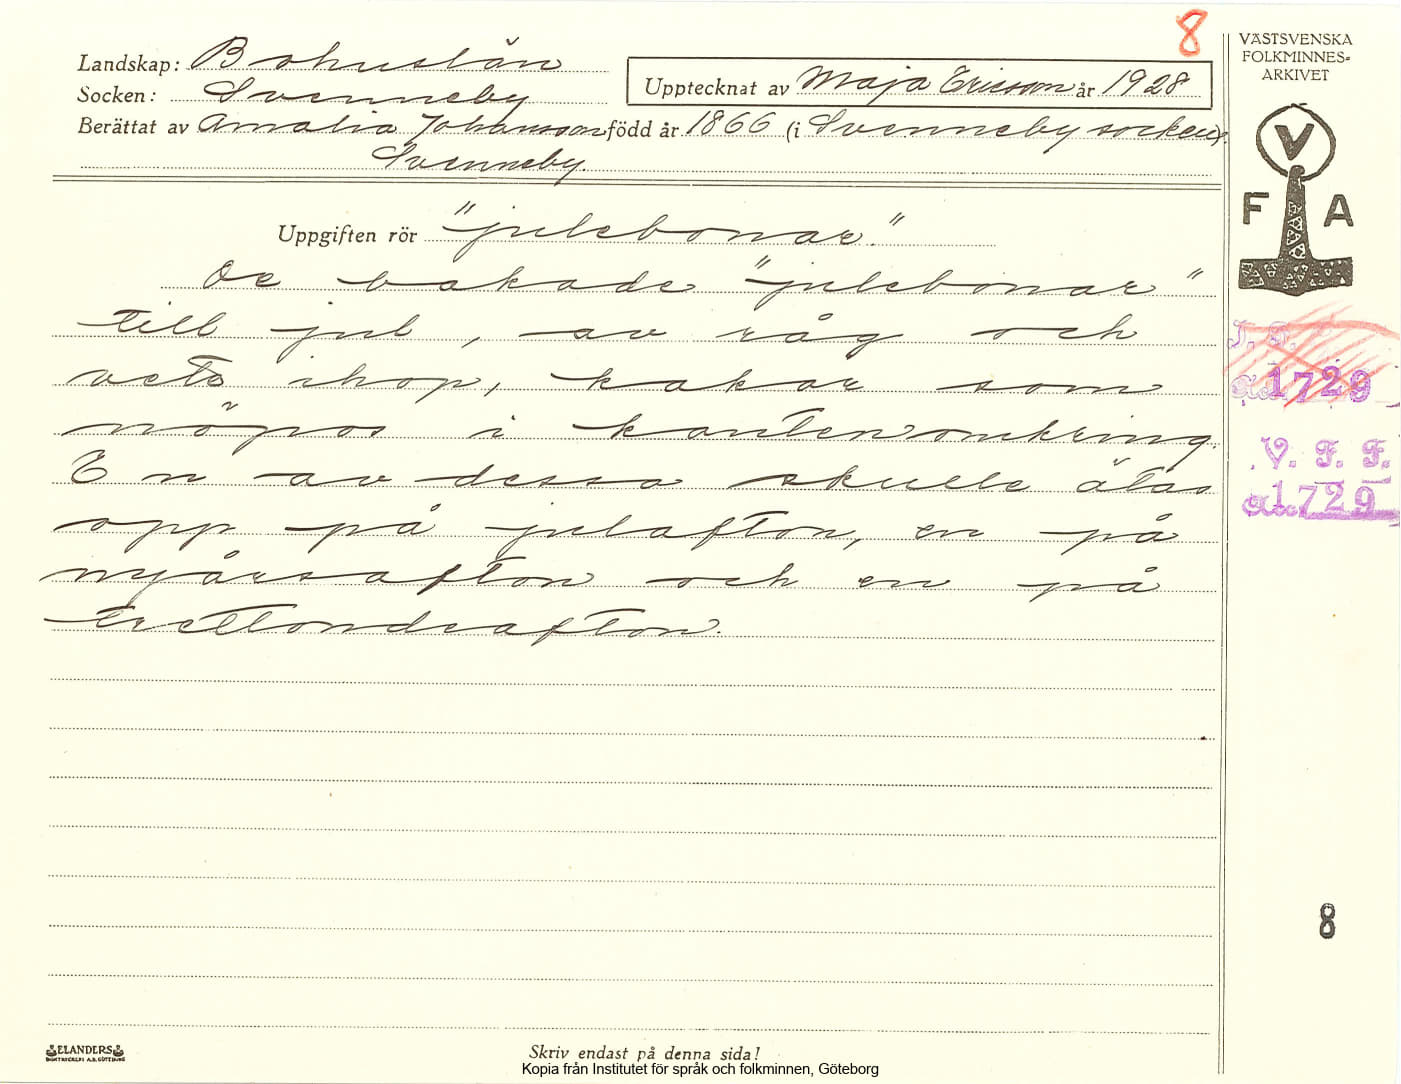 8
VÄSTSVENSKA
FOLKMINNES-
ARKIVET
Landskap: Bohuslän
Socken: Svenneby
Upptecknat av Maja Ericsson år 1928
Berättat av Amalia Johansson född år 1866 (i Svenneby socken).
Svenneby.
V
F A
Uppgiften rör "julebonar".
De bakade "julebonar"
till jul, av råg och
vete ihop, kakar som
nöpos i kanten omkring.
En av dessa skulle ätas
opp på julafton, en på
nyårsafton och en på
trettondeafton.
1729
V. F. F.
Acc 1729
8
ELANDERS
BOKTRYCKERI A.B. GÖTEBORG
Skriv endast på denna sida!
Kopia från Institutet för språk och folkminnen, Göteborg